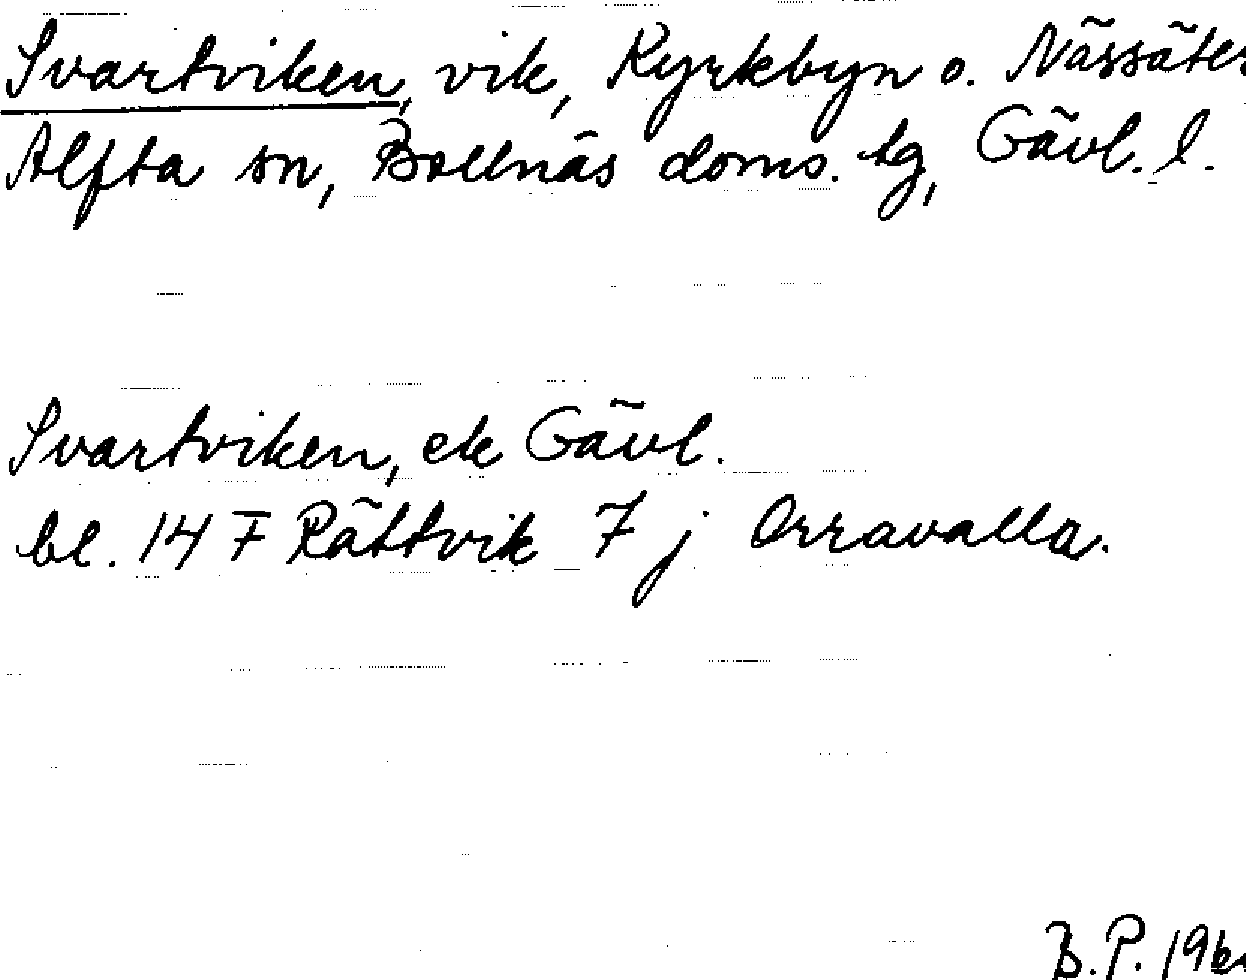 Svartviken, vik, Kyrkbyn o. Nässäter
Alfta sn, Bollnäs doms. tg, Gävl. l.
Svartviken, ek Gävl.
bl. 14 F Rättvik 7 j Orravalla.
B.P. 196